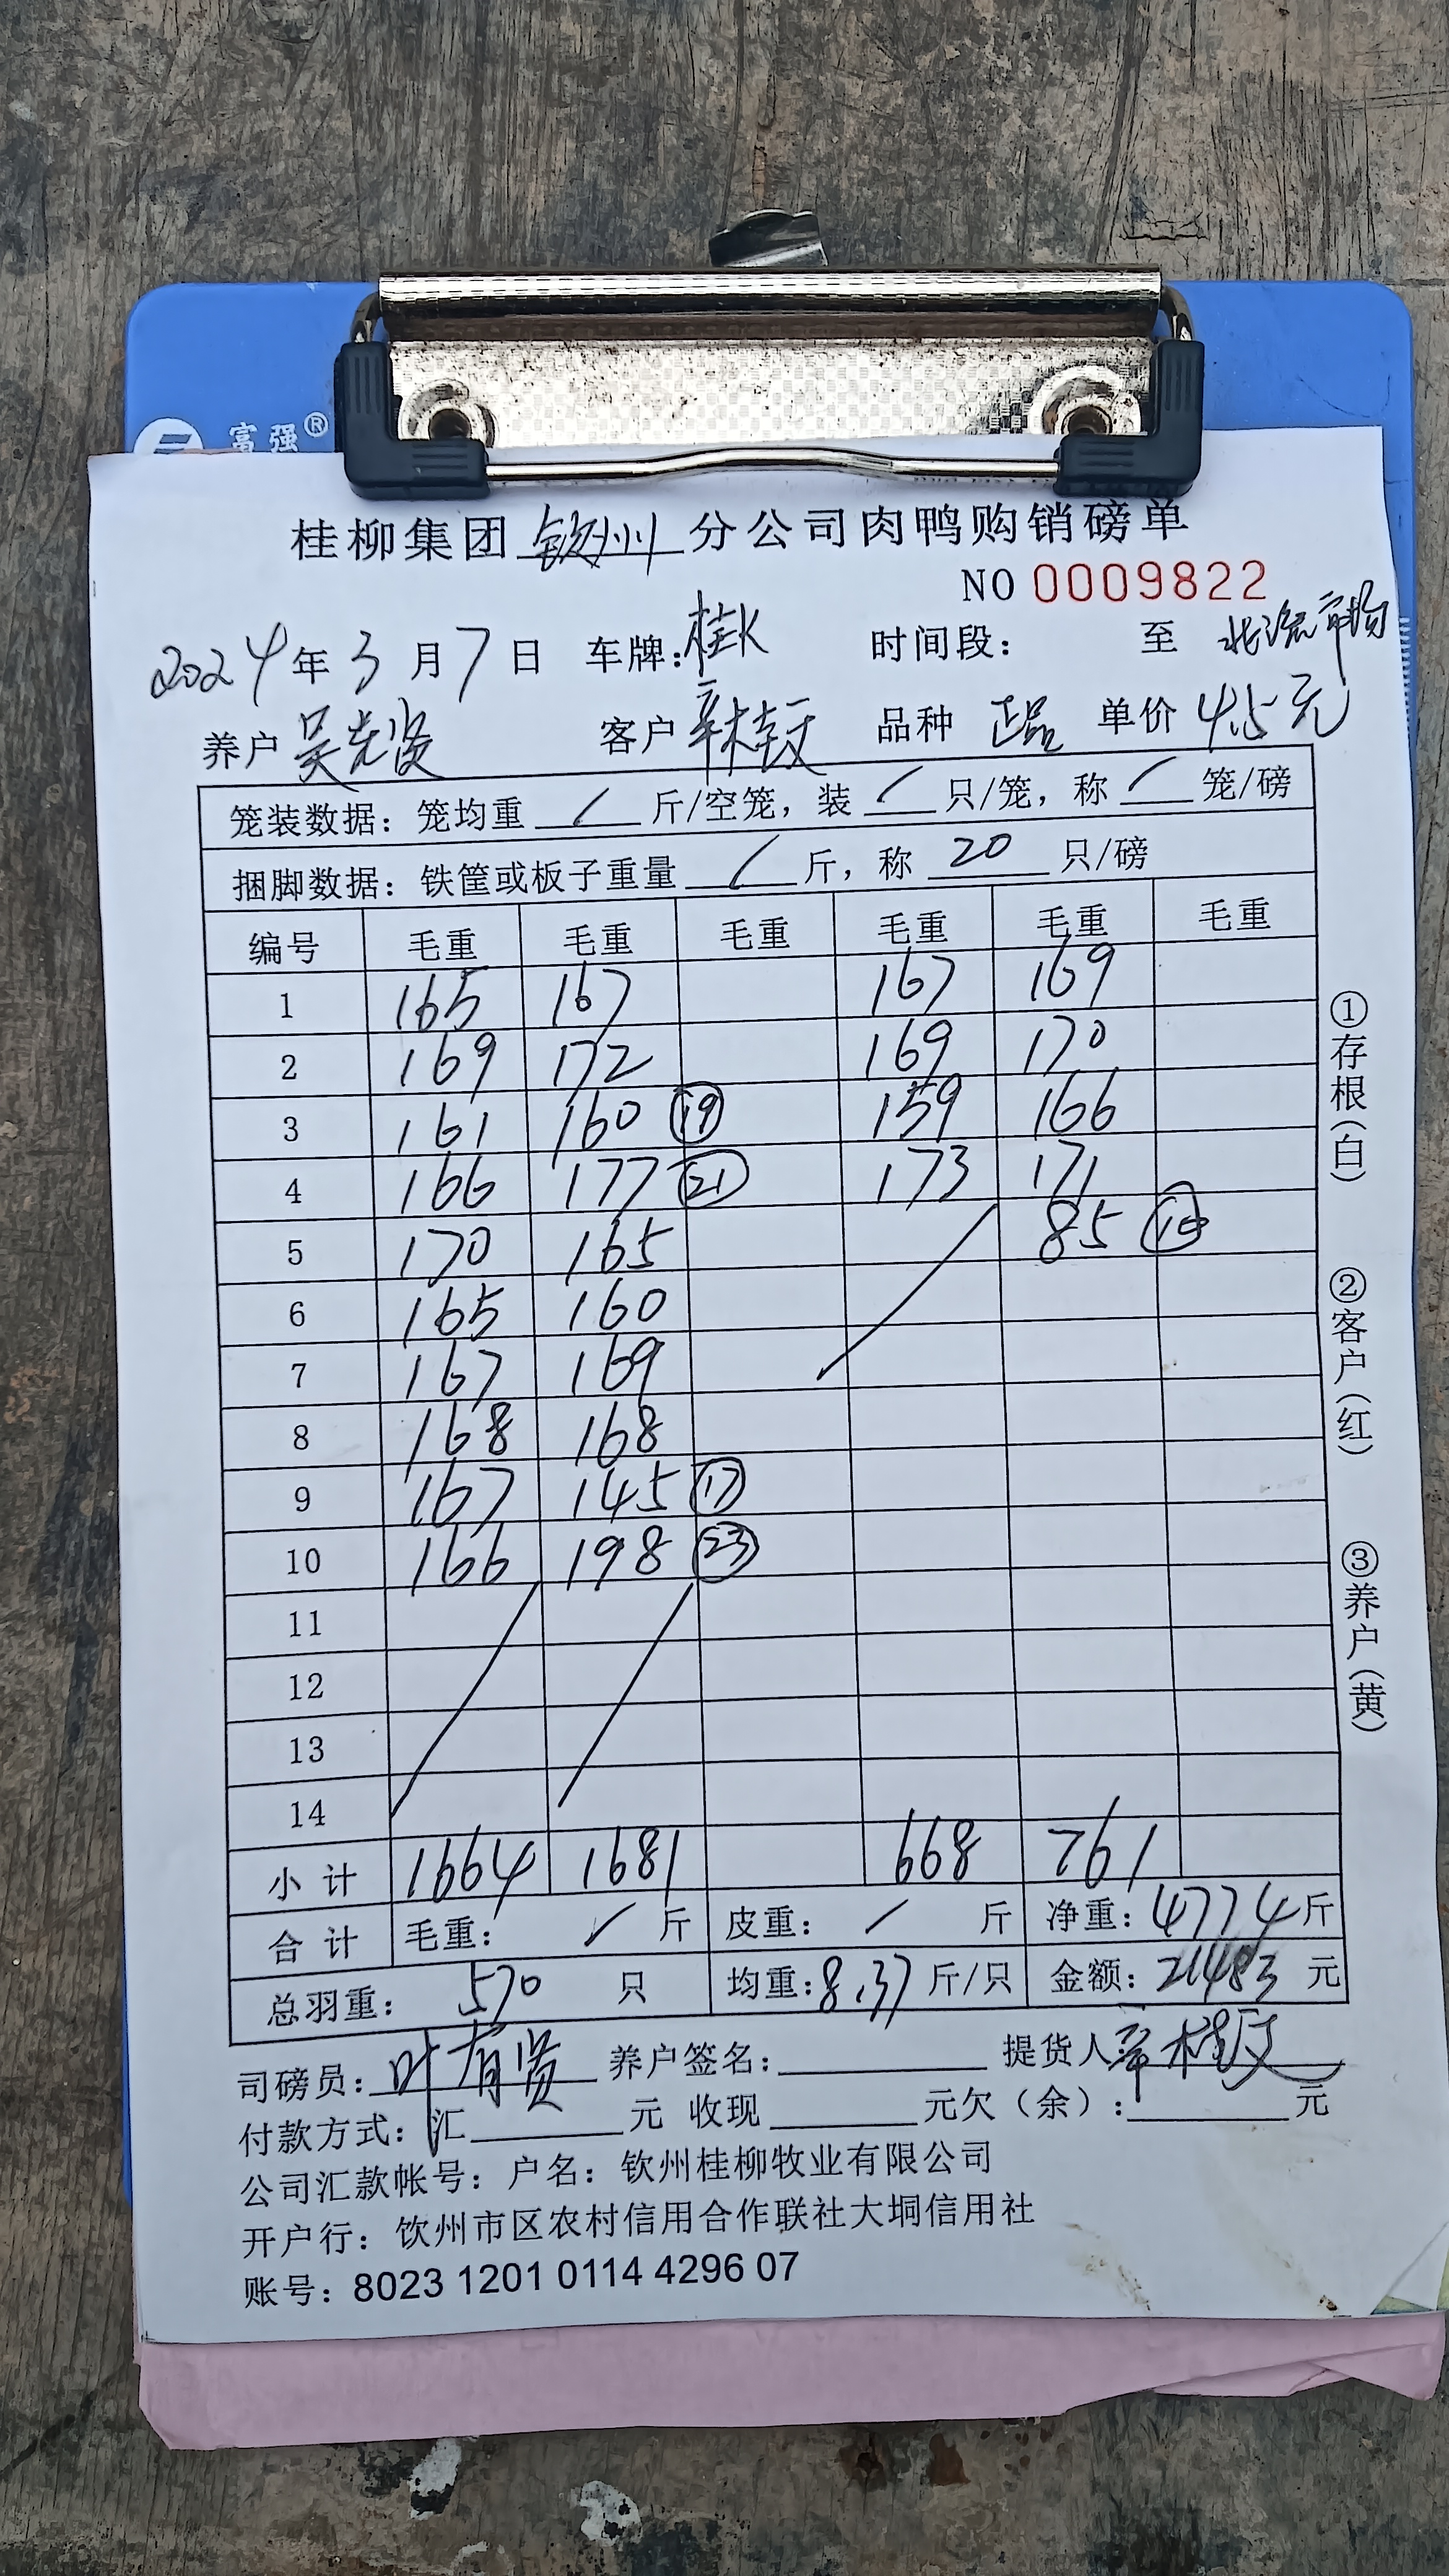 富强®
桂柳集团钦州分公司肉鸭购销磅单
NO 0009822
2024年3月7日 车牌:桂K 时间段: 至 北流市场
养户 吴光贤 客户 辛桂文 品种 正品 单价 4.5元
笼装数据: 笼均重 / 斤/空笼, 装 / 只/笼, 称 / 笼/磅
捆脚数据: 铁筐或板子重量 / 斤, 称 20 只/磅
编号 毛重 毛重 毛重 毛重 毛重 毛重
1 165 167 167 169
2 169 172 169 170
3 161 160 ⑲ 159 166
4 166 177 ㉑ 173 171
5 170 165 85 ⑩
6 165 160
7 167 169
8 168 168
9 167 145 ⑰
10 166 198 ㉓
11
12
13
14
小计 1664 1681 668 761
合计 毛重: / 斤 皮重: / 斤 净重: 4774斤
总羽重: 570 只 均重: 8.37 斤/只 金额: 21483 元
司磅员: 叶有贤 养户签名: 提货人 辛桂文
付款方式: 汇 元 收现 元欠(余): 元
公司汇款帐号: 户名: 钦州桂柳牧业有限公司
开户行: 钦州市区农村信用合作联社大垌信用社
账号: 8023 1201 0114 4296 07
①存根(白)
②客户(红)
③养户(黄)